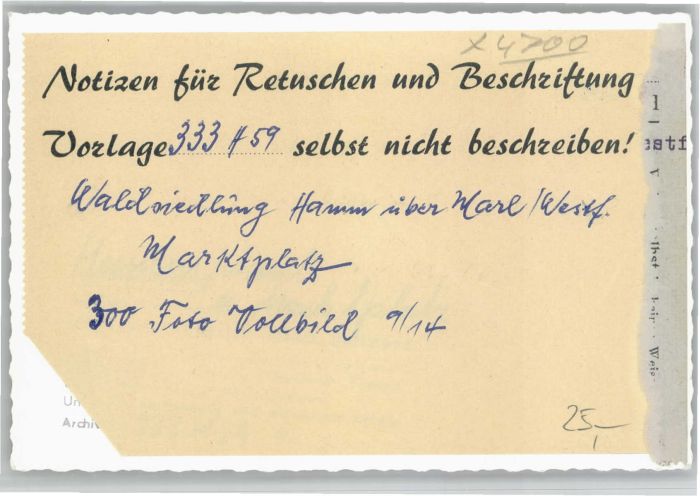 x 4700
Notizen für Retuschen und Beschriftung
Vorlage 333 H 59 selbst nicht beschreiben!
Waldsiedlung Hamm über Marl/Westf.
Marktplatz
300 Foto Vollbild 9/14
25,-
Un
Archiv
l
estf